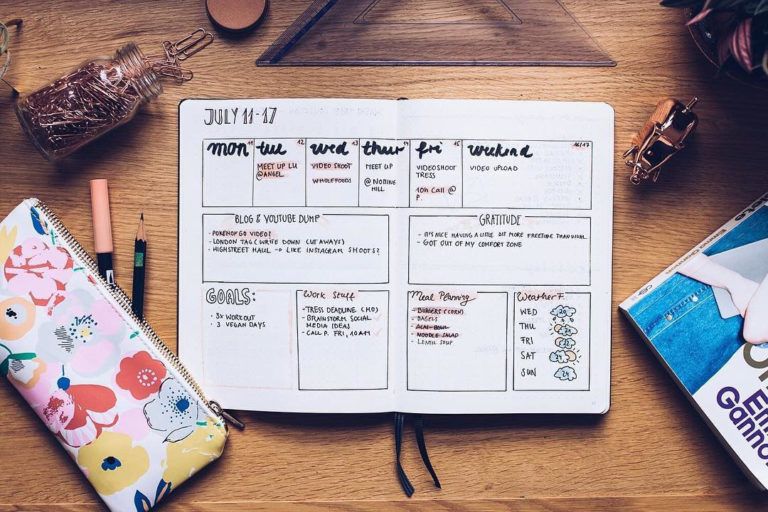 JULY 11-17
mon 11 tue 12 wed 13 thur 14 fri 15 weekend 16/17
MEET UP LU
@ANGEL
VIDEO SHOOT
WHOLEFOODS
MEET UP
@ NOTTING
HILL
VIDEOSHOOT
TRESS
10h CALL @
P.
VIDEO UPLOAD
BLOG & YOUTUBE DUMP
- POKEMON GO VIDEO?
- LONDON TAG (WRITE DOWN CUTAWAYS)
- HIGHSTREET HAUL → LIKE INSTAGRAM SHOOTS?
GRATITUDE
- IT'S NICE HAVING A LITTLE BIT MORE FREETIME THAN USUAL
- GOT OUT OF MY COMFORT ZONE
GOALS:
- 3x WORKOUT
- 3 VEGAN DAYS
Work Stuff
- TRESS DEADLINE (MO)
- BRAINSTORM SOCIAL
MEDIA (DEA)
- CALL P. FRI, 10 AM
Meal Planning
- BURGERS (CORN)
- BAGELS
- NOODLE SALAD
- LEMIL SOUP
Weather F.
WED
THU
FRI
SAT
SUN
Em
Ganno